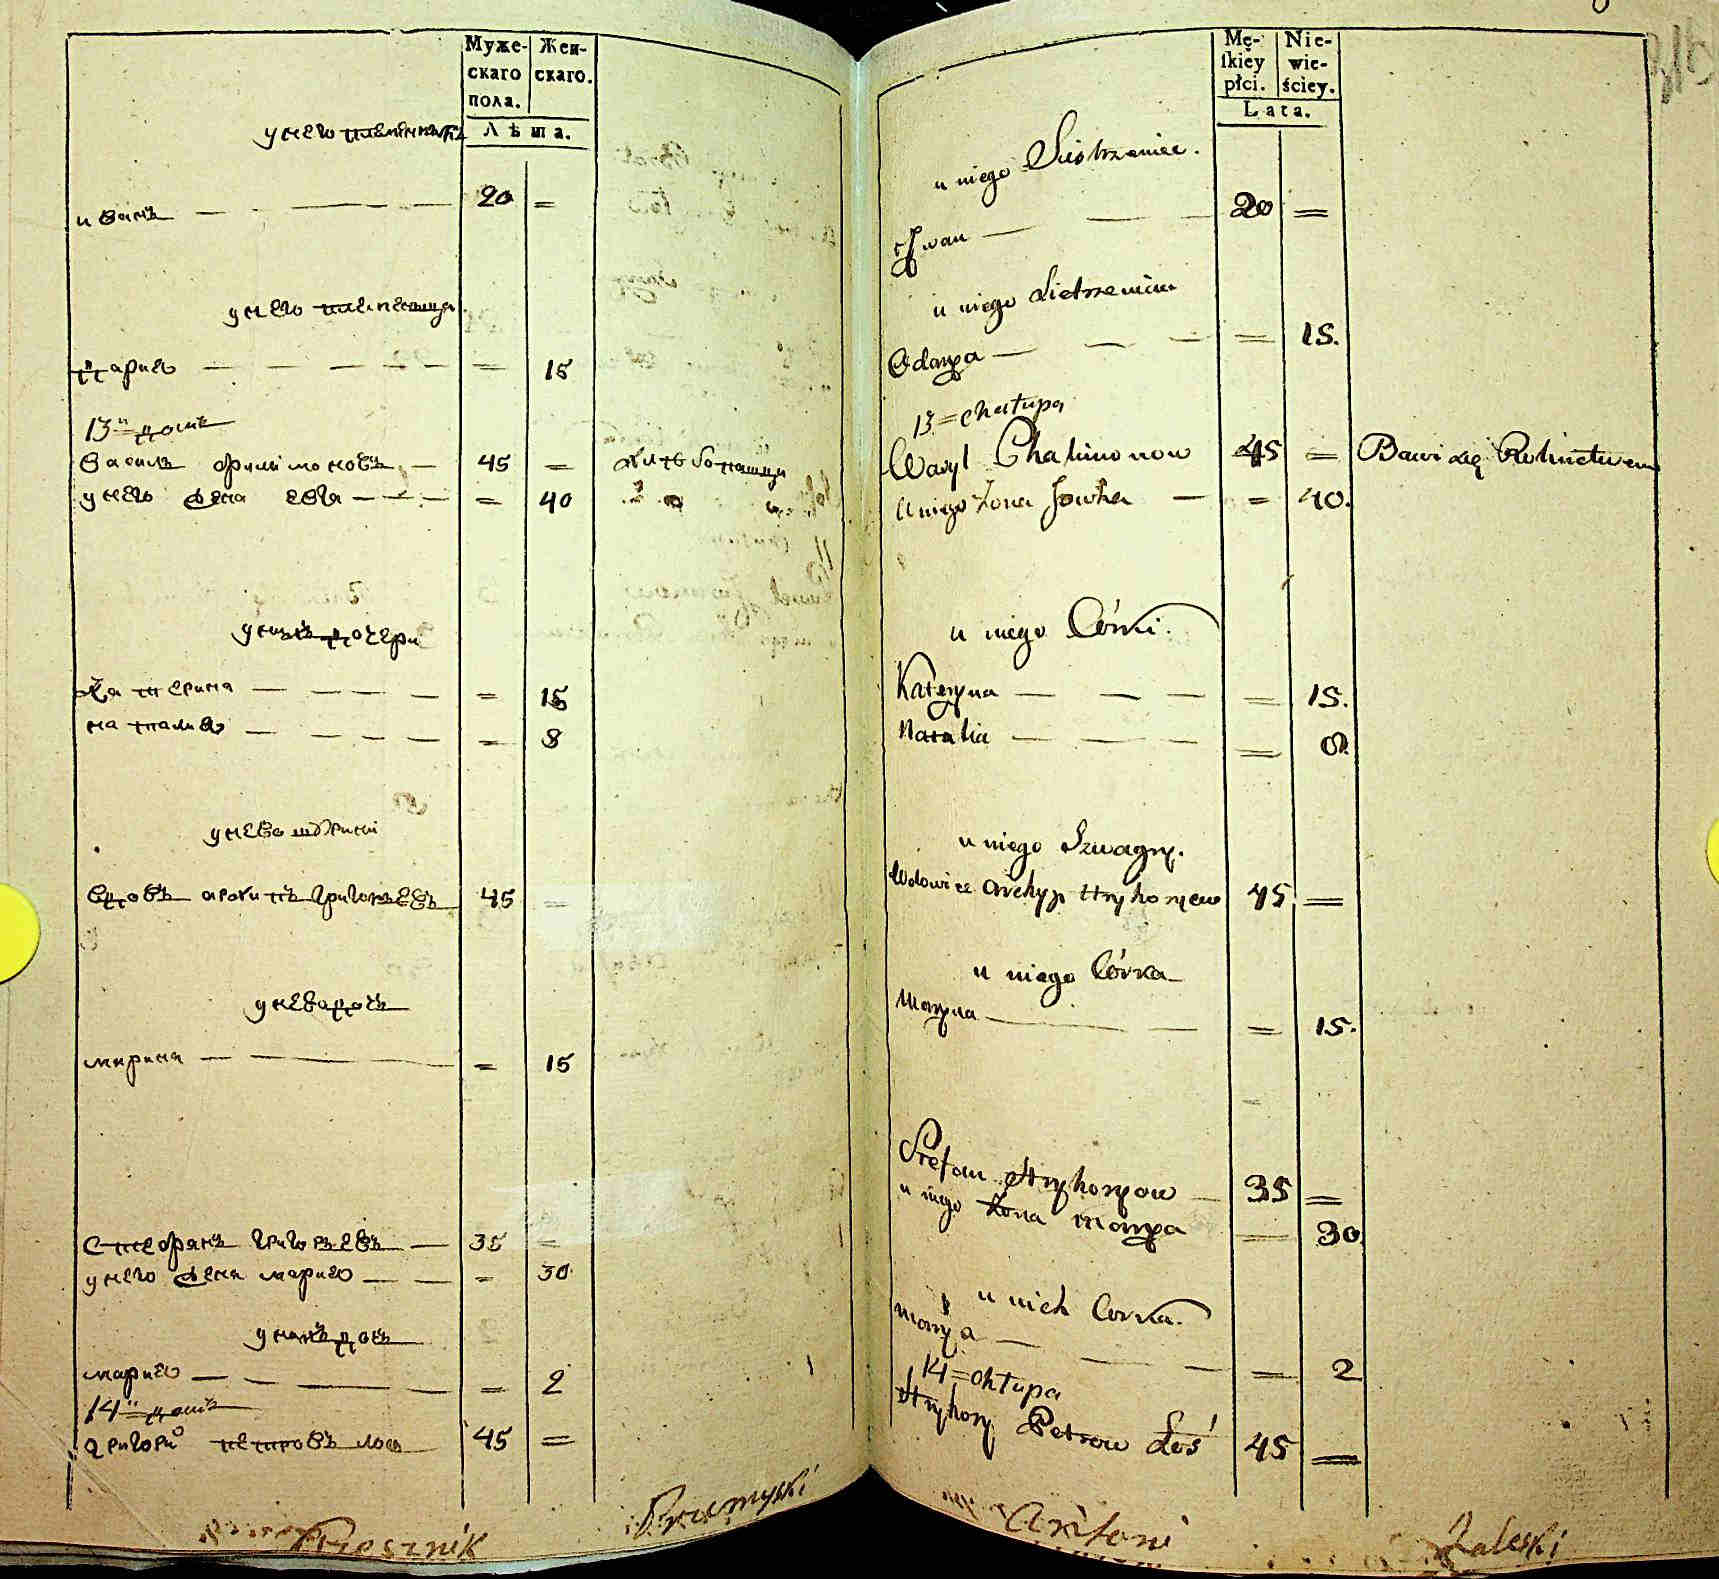 Муже-
скаго
пола.
Жен-
скаго.
Лѣта.
у него племенникъ
иванъ — — — 20 =
у него племеница
дария — — — = 15
13й домъ
василь филимоновъ — 45 =
у него жена евга — — — = 40
у нихъ дочери
катерина — — — = 15
наталия — — — = 8
у нево
вдовъ архипъ григорьевъ 45 =
у нева дочь
марина — — — = 15
стефанъ григорьевъ — 35 =
у него жена мария — — = 30
у нихъ дочь
мария — — — = 2
14й домъ
григорий петровъ лось 45 =
Męz-
skiéy
płci.
Nie-
wie-
ściey.
Lata.
u niego Siostrzeniec.
Jwan — — — 20 =
u niego
Odarya — — — = 15.
13 = chałupa
Wasyl Chalimonow 45 = Bawi się
u niego Zona Jowka — = 40.
u niego Córki.
Kateryna — — — = 15.
Natalia — — — = 8.
u niego Szwagry.
Wdowiec Archyp Hryhoryew 45. =
u niego Córka
Maryna — — — = 15.
Stefan Hryhoryow — 35 =
u niego Zona Marya — 30.
u nich Corka.
Marya — — — = 2
14 = chłupa
Hryhory Petrow Łoś 45 =
Antoni
Zaleski